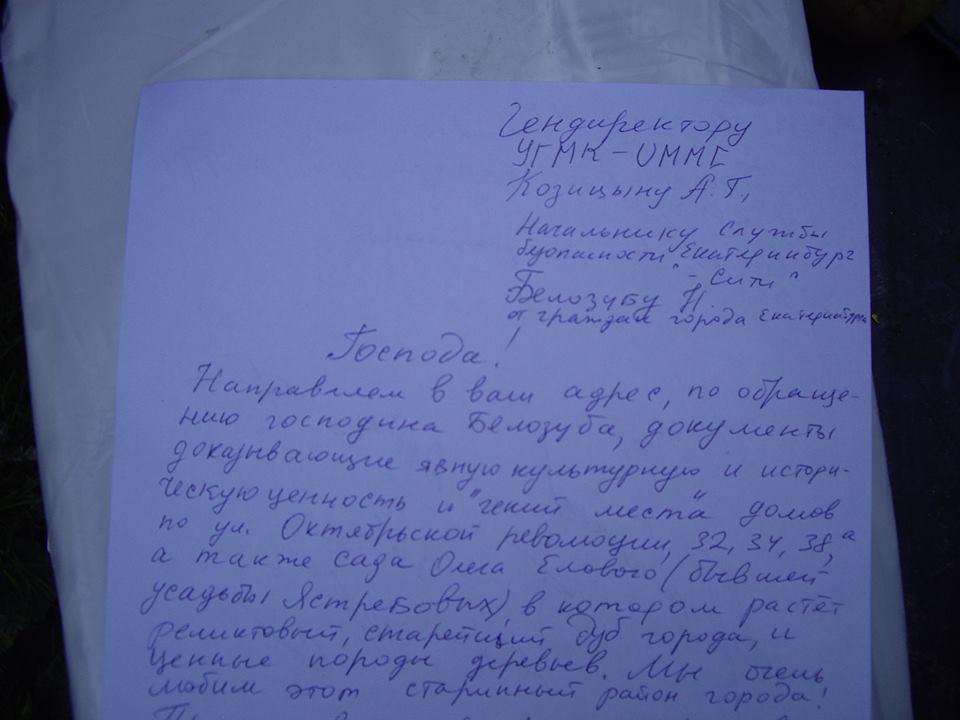 Гендиректору
УГМК – UMMC
Козицыну А.Г.,
Начальнику Службы
безопасности „Екатеринбург
– Сити“
Белозубу Н.
от граждан города Екатеринбурга
Господа!
Направляем в ваш адрес, по обраще-
нию господина Белозуба, документы
доказывающие явную культурную и истори-
ческую ценность и "гений места" домов
по ул. Октябрьской революции, 32, 34, 38,а
а также сада Олега Елового (бывшей
усадьбы Ястребовых), в котором растёт
реликтовый, старейший дуб города, и
ценные породы деревьев. Мы очень
любим этот старинный район города!